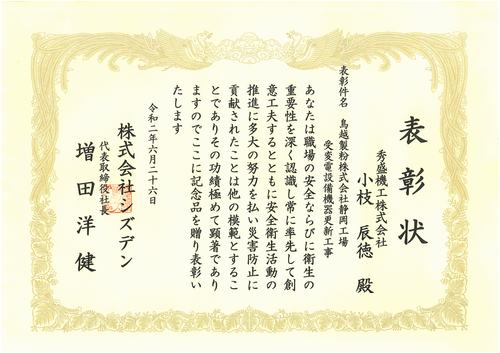 表彰状
秀盛機工株式会社
小枝 辰徳 殿
表彰件名 鳥越製粉株式会社静岡工場
受変電設備機器更新工事
あなたは職場の安全ならびに衛生の
重要性を深く認識し常に率先して創
意工夫するとともに安全衛生活動の
推進に多大の努力を払い災害防止に
貢献されたことは他の模範とするこ
とでありその功績極めて顕著であり
ますのでここに記念品を贈り表彰い
たします
令和二年六月二十六日
株式会社シズデン
代表取締役社長
増田洋健